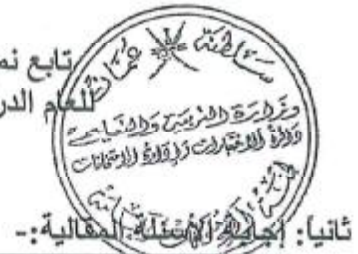 تابع نم
للعام الدر
سلطنة عمان
وزارة التربية والتعليم
دائرة الاختبارات وإدارة الامتحانات
ثانياً: إجابة الأسئلة المقالية:-